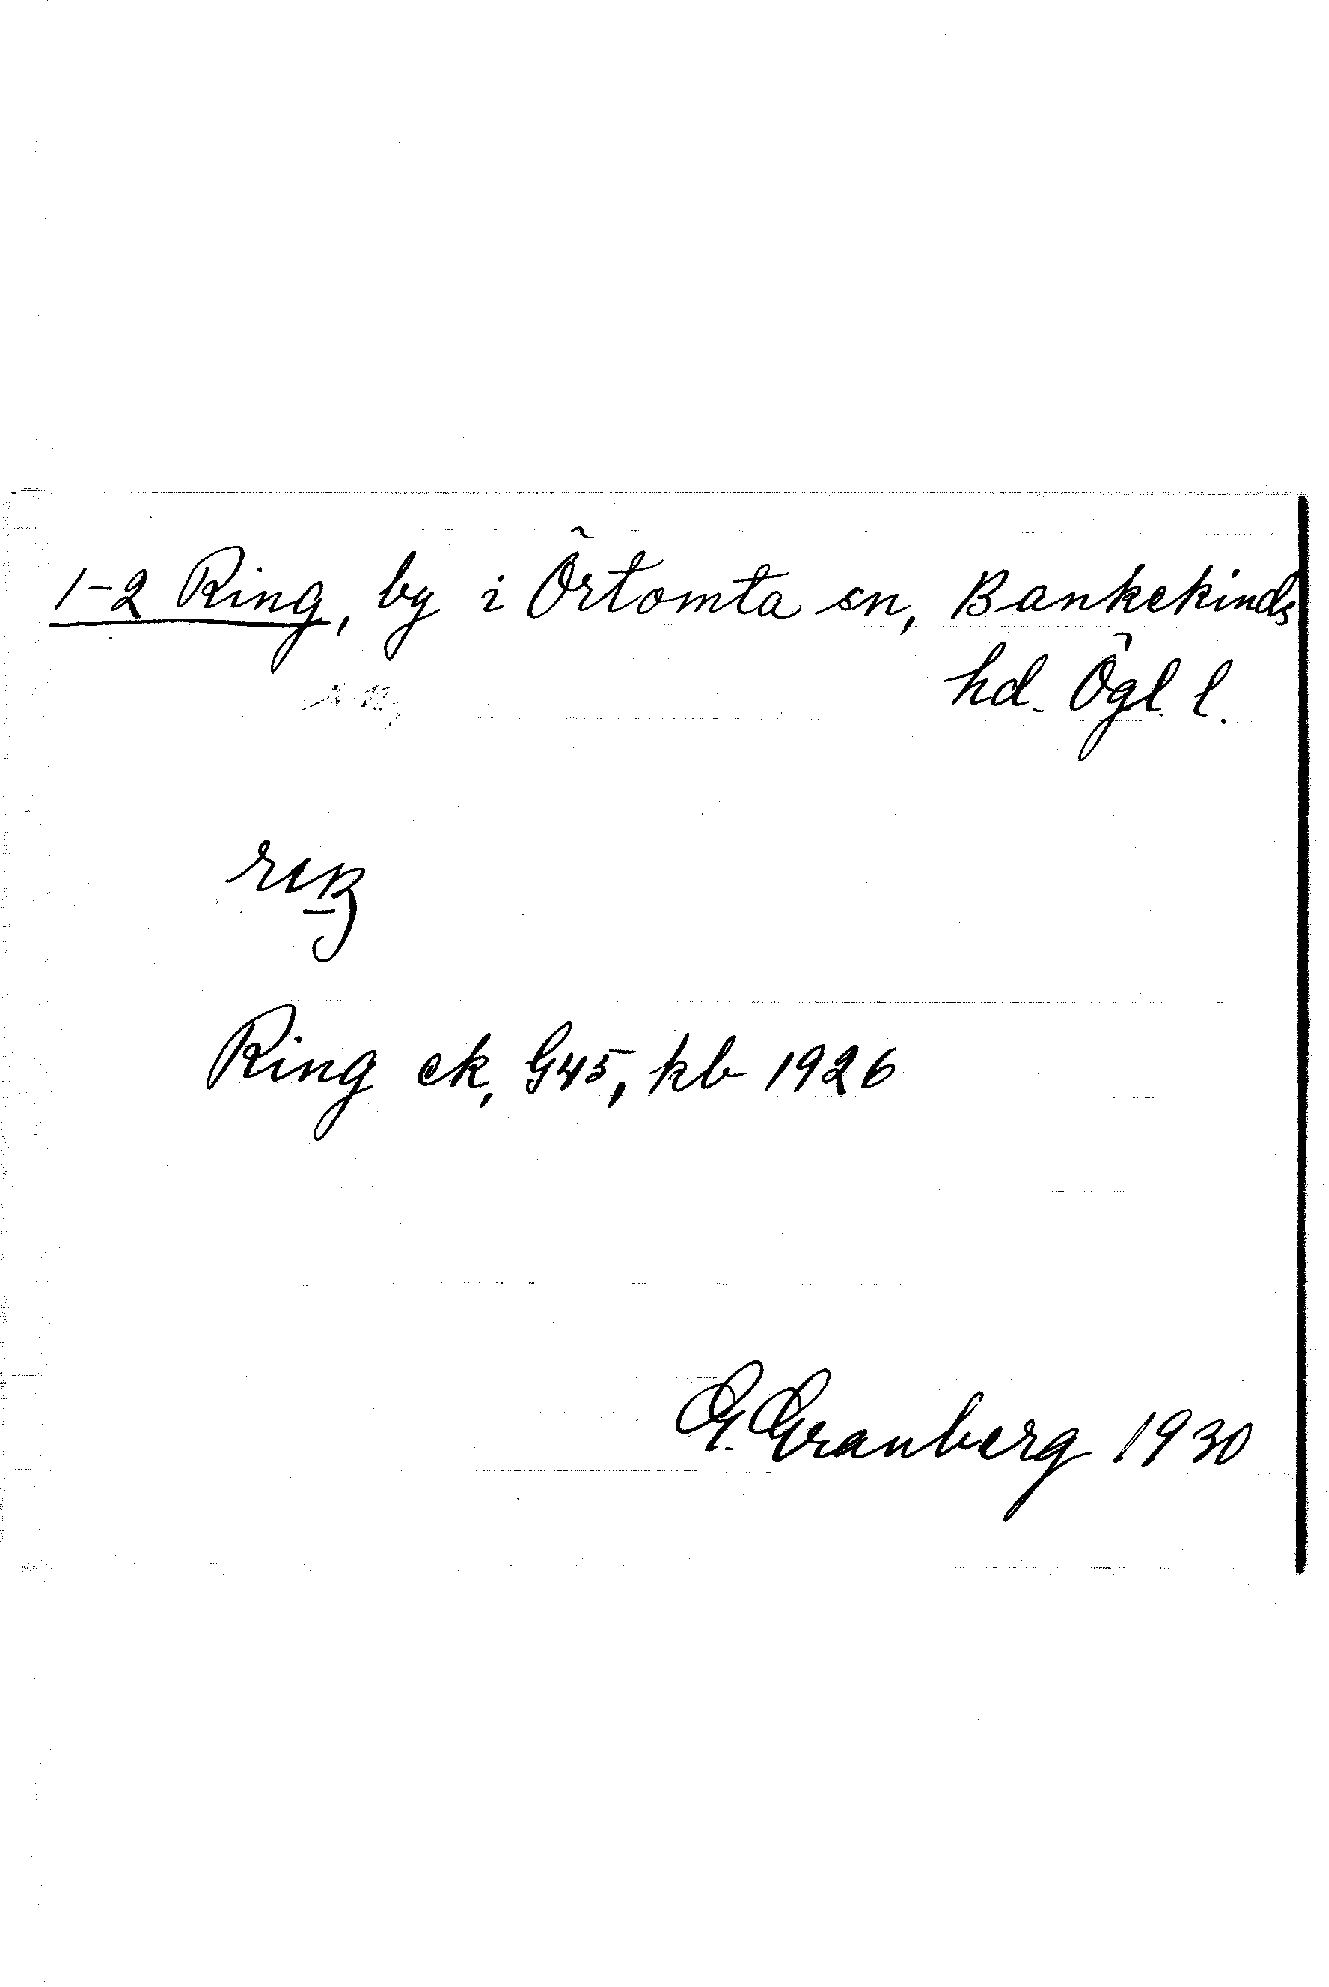 1-2 Ring, by i Örtomta sn, Bankekinds
hd. Ögl. l.
Ring ek, G45, kb 1926
G. Granberg 1930